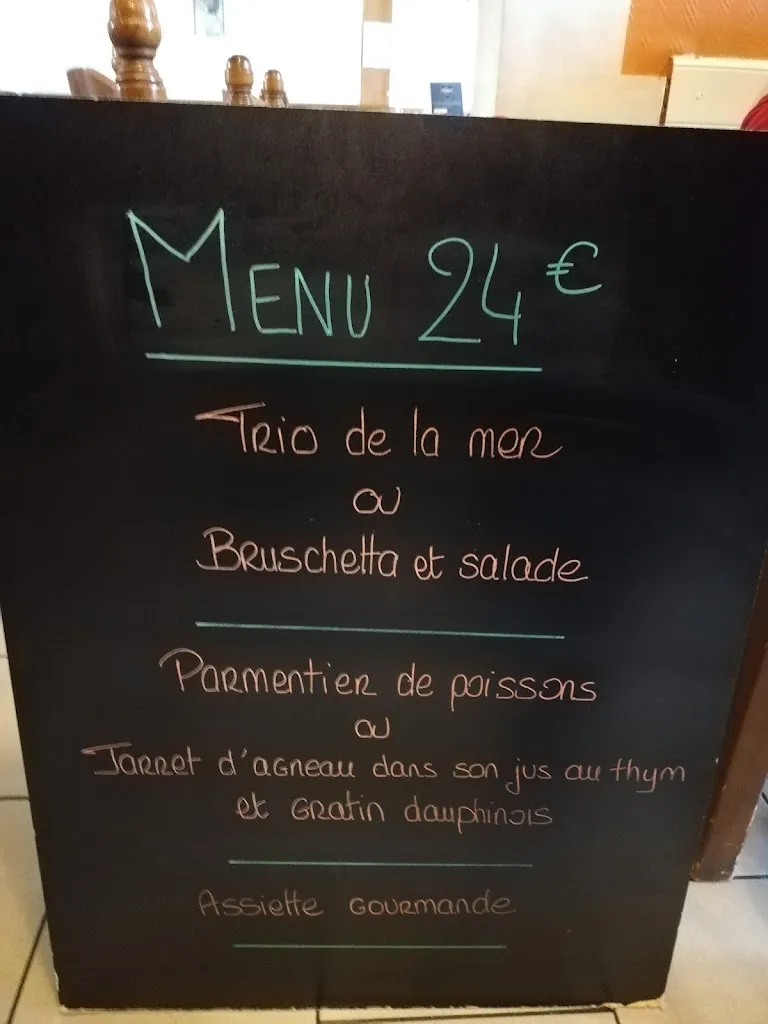 Menu 24€
Trio de la mer
ou
Bruschetta et salade
Parmentier de poissons
ou
Jarret d'agneau dans son jus au thym
et Gratin dauphinois
Assiette Gourmande